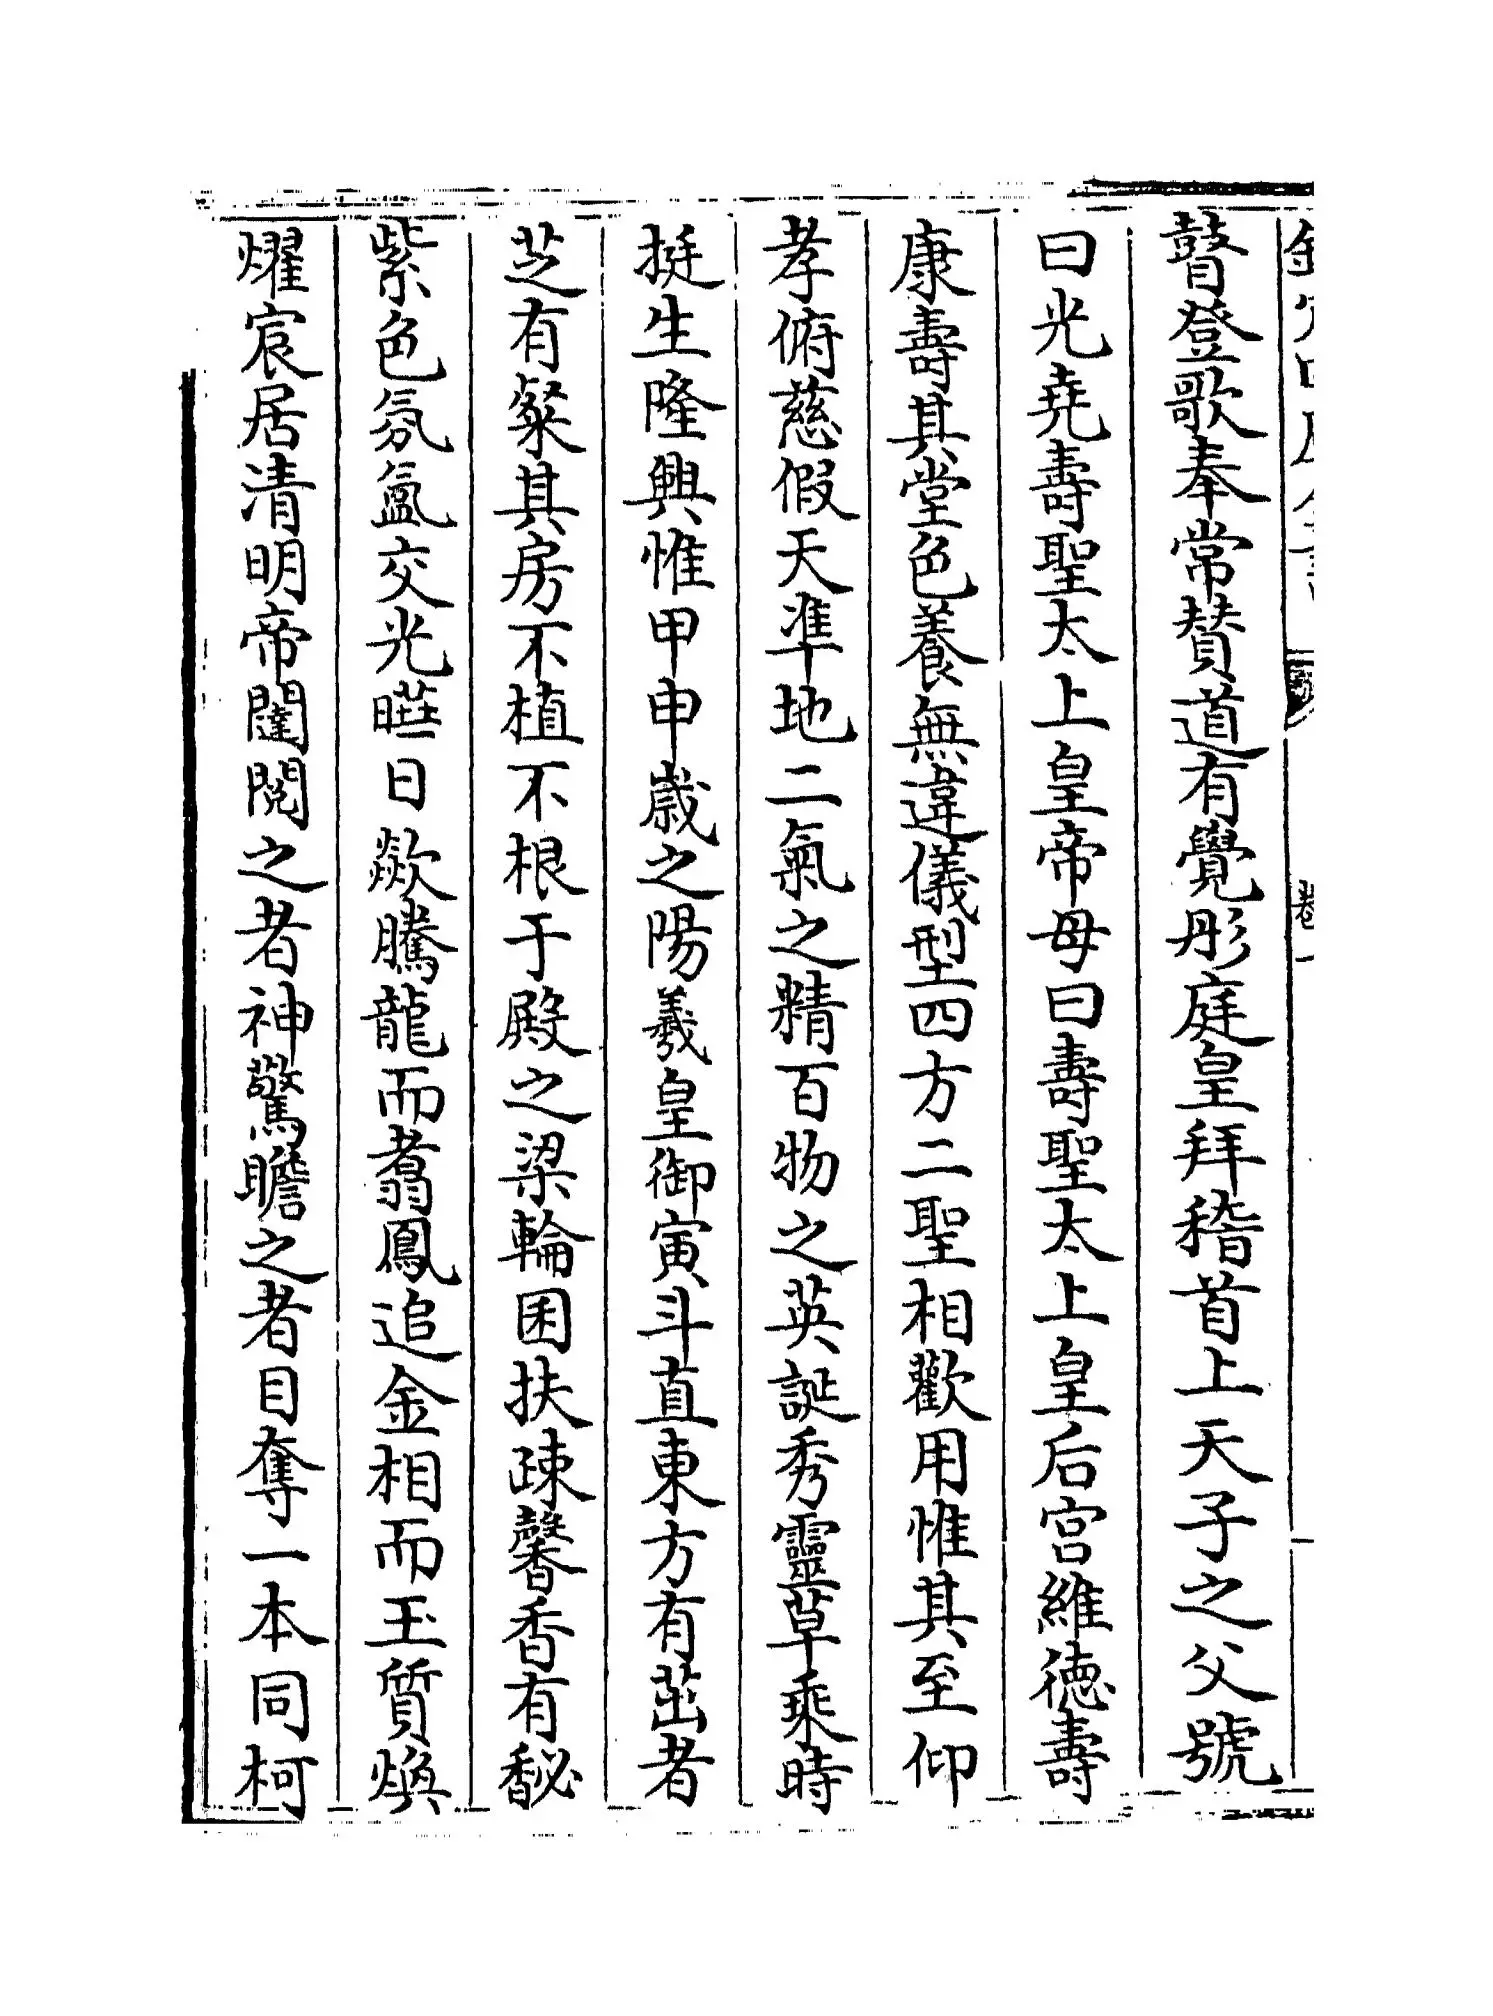 瞽登歌奉常賛道有覺彤庭皇拜稽首上天子之父號
曰光堯壽聖太上皇帝母曰壽聖太上皇后宮維德壽
康壽其堂色養無違儀型四方二聖相歡用惟其至仰
孝俯慈假天準地二氣之精百物之英誕秀靈草乘時
挺生隆興惟甲申歲之陽羲皇御寅斗直東方有茁者
芝有粲其房不植不根于殿之梁輪囷扶疎馨香有馝
紫色氛氲交光暀日歘騰龍而翥鳳追金相而玉質煥
燿宸居清明帝闥閲之者神驚瞻之者目奪一本同柯
卷一